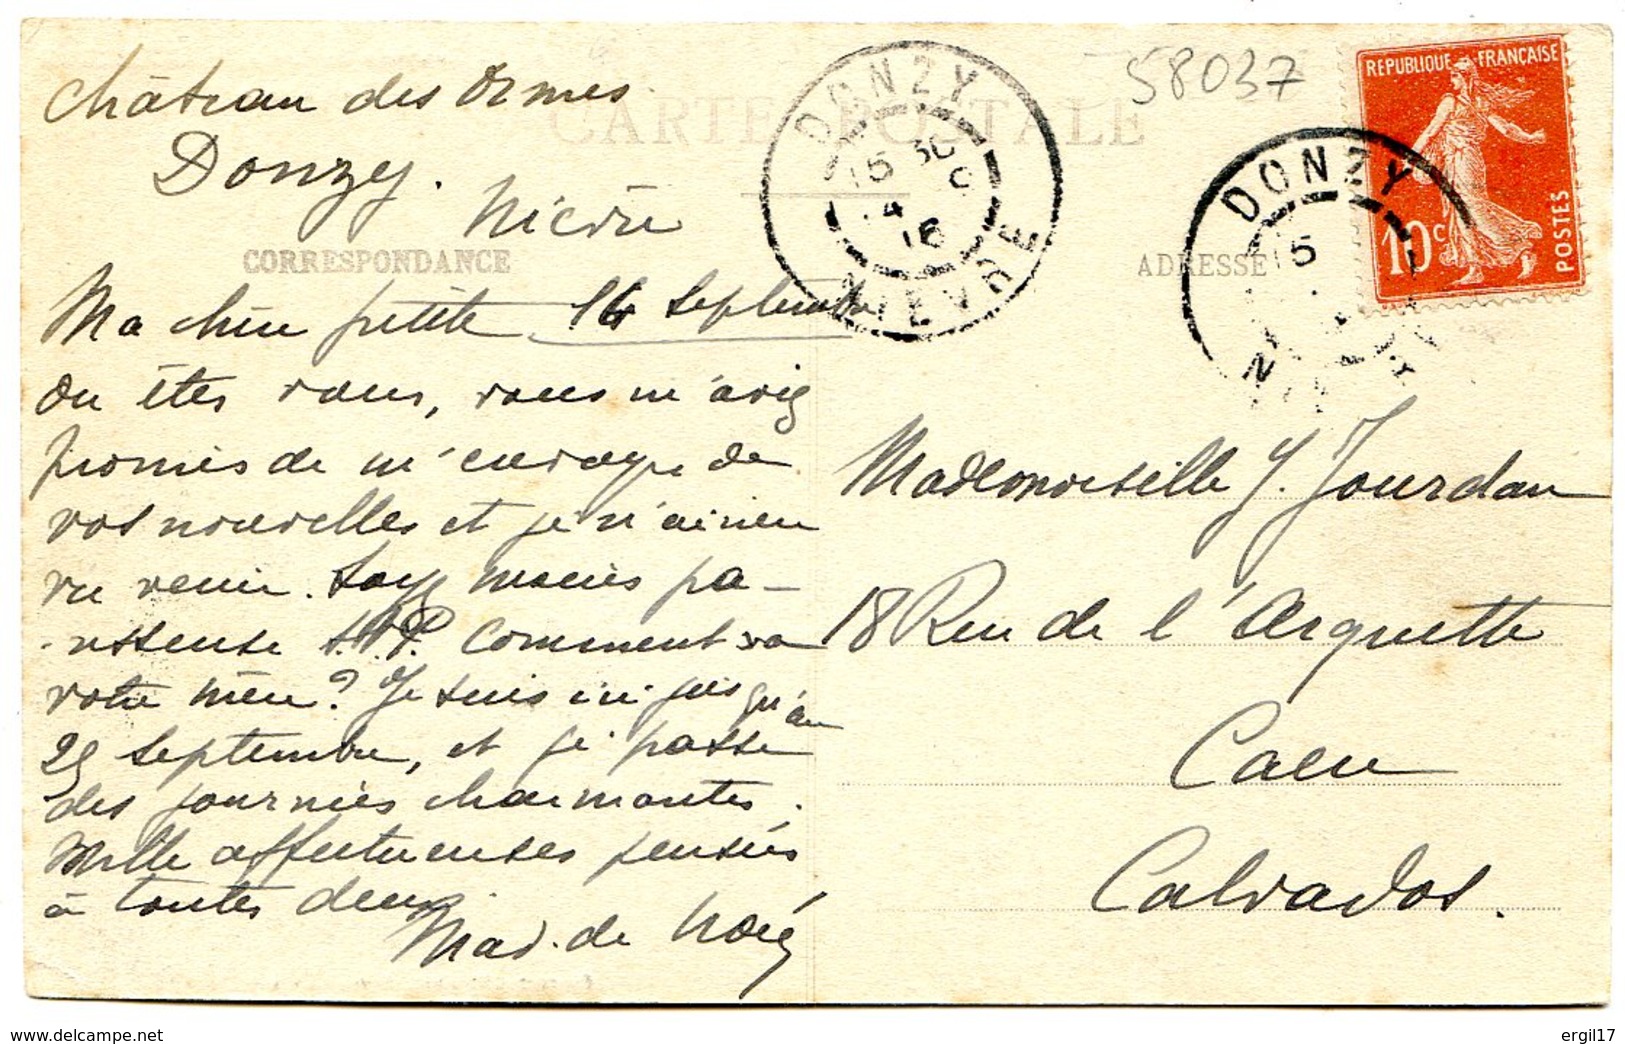 Château des Ormes
Donzy.
Nièvre
58037
CARTE POSTALE
DONZY
15 30
14 9
16
NIEVRE
DONZY
15
REPUBLIQUE FRANÇAISE
10c
POSTES
CORRESPONDANCE
ADRESSE
Ma chère petite 14 Septembre
Ou êtes vous, vous m'aviez
promis de m'envoyer de
vos nouvelles et je n'ai rien
vu venir. Soyez moins pa-
-resseuse S.V.P. Comment va
votre mère? Je suis ici jusqu'au
25 Septembre, et je passe
des journées charmantes.
Mille affectueuses pensées
à toutes deux.
Mad. de
Mademoiselle J. Jourdan
18 Rue de l'Arquette
Caen
Calvados.
ergil17